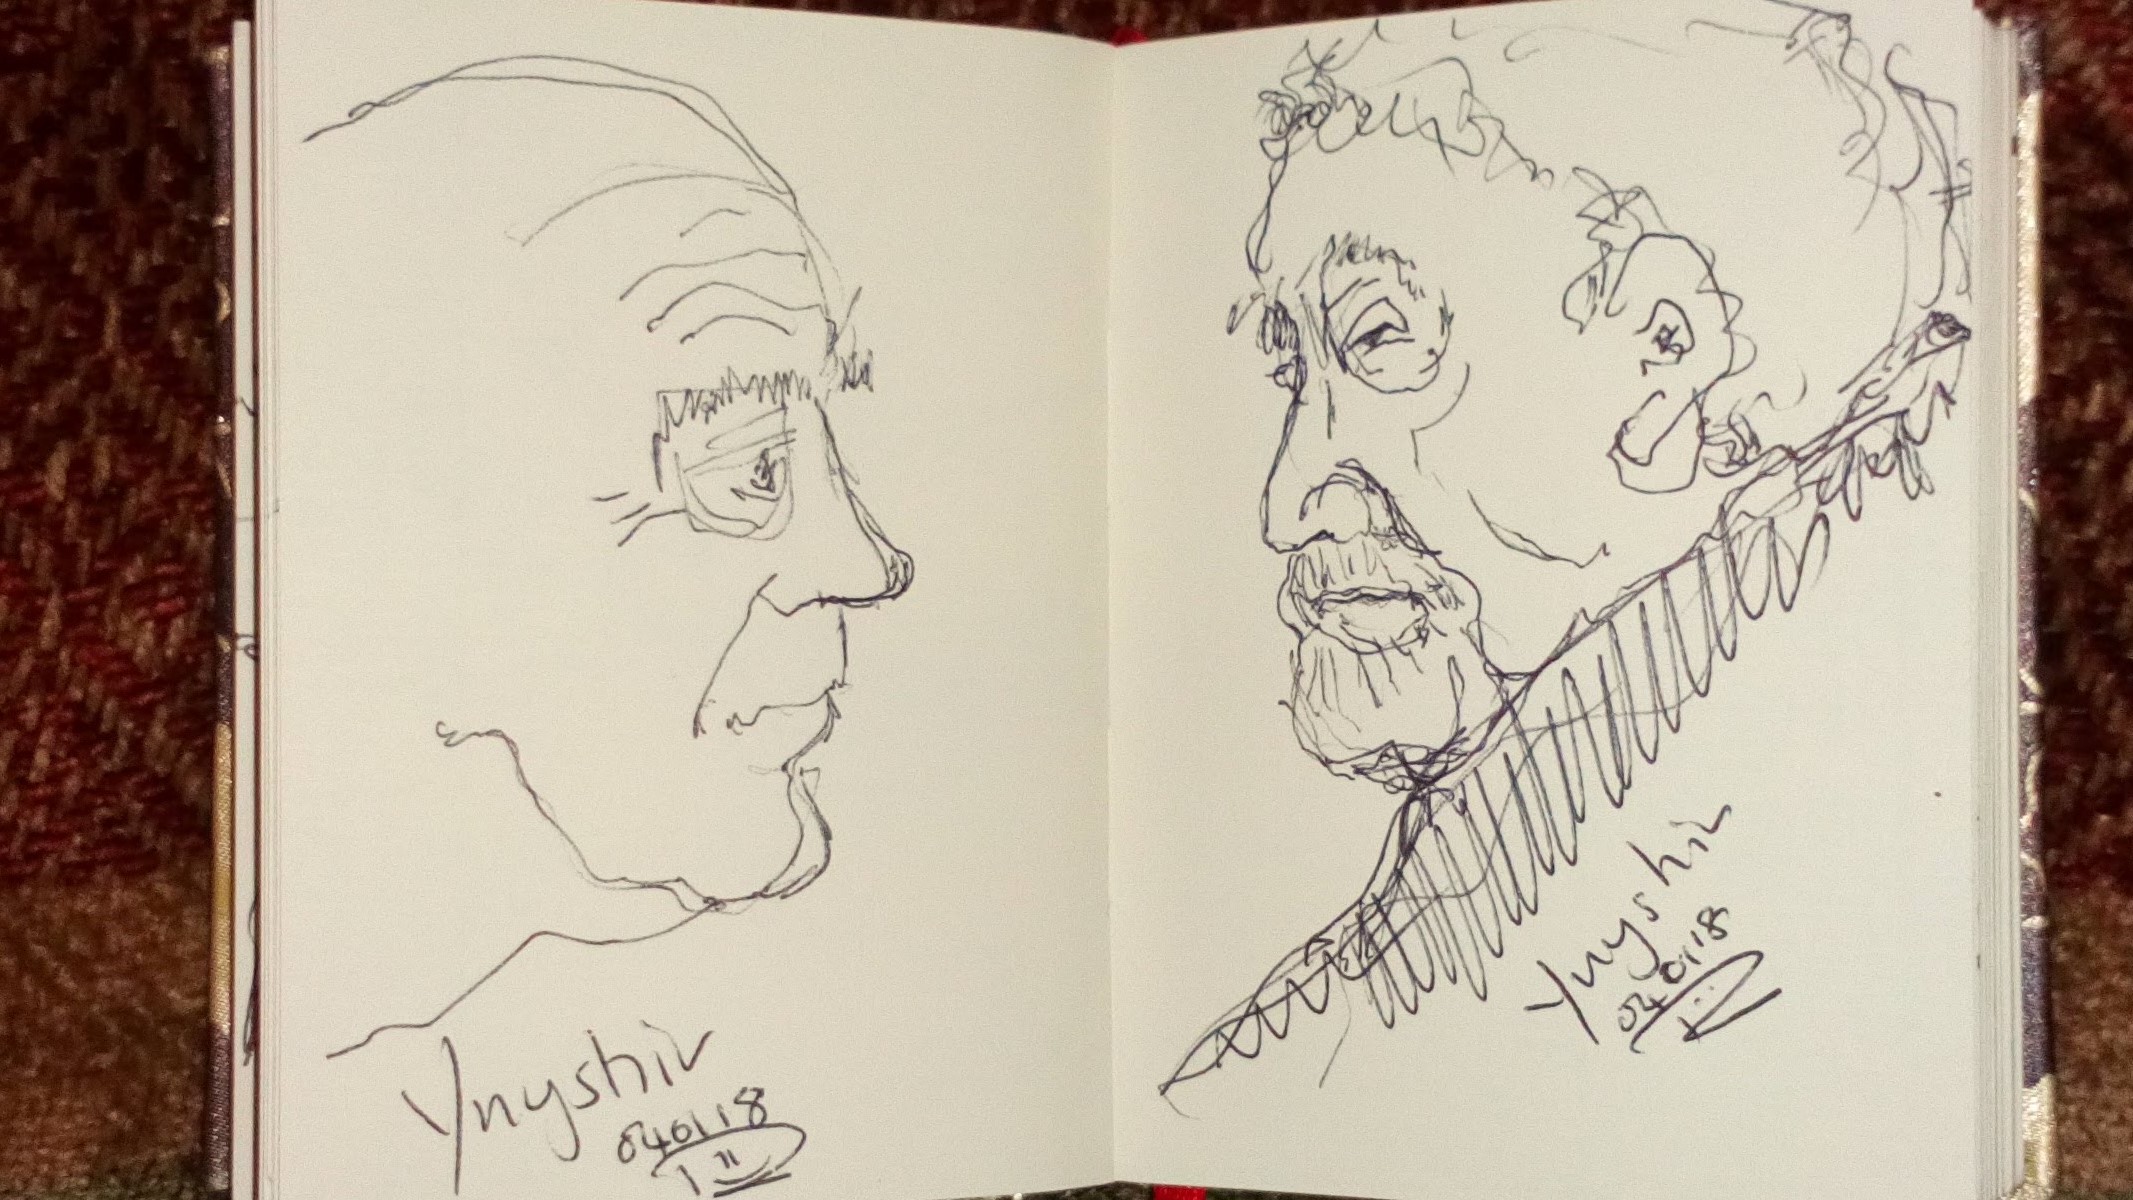 Ynyshir
040118
Ynyshir
040118